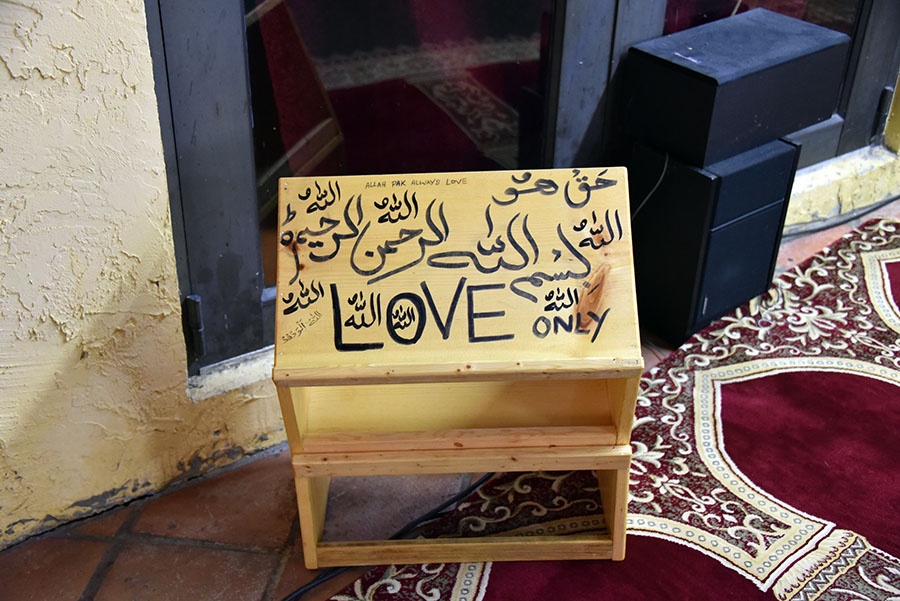 ALLAH PAK ALWAYS LOVE
حق هو
الله الله الله
بسم الله الرحمن الرحيم
الله LOVE الله الله الله
ONLY